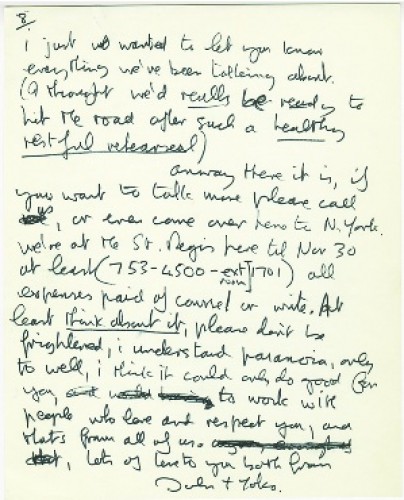 8/
i just wanted to let you know
everything we've been talking about.
(I thought we'd really be ready to
hit the road after such a healthy
restful rehearsal)
anyway there it is, if
you want to talk more please call
us, or even come over here to N. York.
we're at the St. Regis here til Nov 30
at least (753-4500-ext/room 1701) all
expenses paid of course! or write. At
least think about it, please don't be
frightened, i understand paranoia, only
to well, i think it could only do good for
you, to work with
people who love and respect you, and
thats from all of us
, lots of love to you both from
John + Yoko.